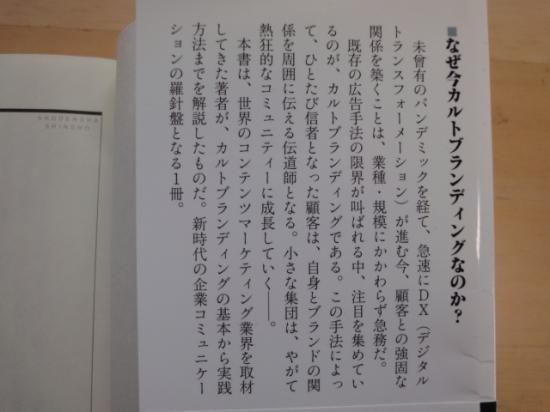 ■なぜ今カルトブランディングなのか？
未曾有のパンデミックを経て、急速にDX（デジタル
トランスフォーメーション）が進む今、顧客との強固な
関係を築くことは、業種・規模にかかわらず急務だ。
既存の広告手法の限界が叫ばれる中、注目を集めてい
るのが、カルトブランディングである。この手法によっ
て、ひとたび信者となった顧客は、自身とブランドの関
係を周囲に伝える伝道師となる。小さな集団は、やがて
熱狂的なコミュニティーに成長していく――。
本書は、世界のコンテンツマーケティング業界を取材
してきた著者が、カルトブランディングの基本から実践
方法までを解説したものだ。新時代の企業コミュニケー
ションの羅針盤となる1冊。
SHODENSHA
SHINSHO